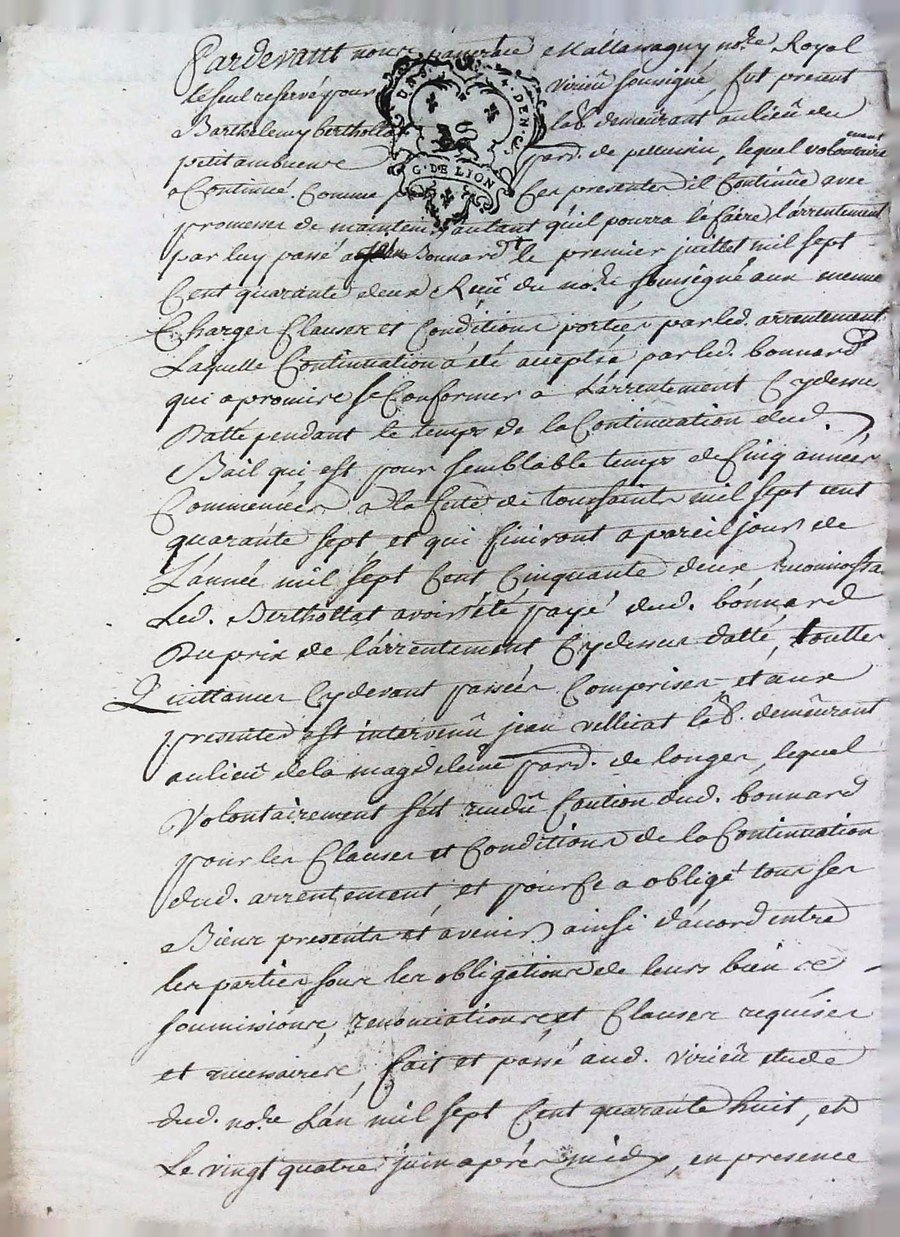 Pardevant nous Mallassagny no.re Royal
le seul reservé pour virieû soussigné, fut present
Barthelemy berthollat lab.r demeurant au lieû du
petit ambuent par.d de pellusin, lequel volontairement
a Continué Comme par Ces presentes il Continüe avec
promesse de maintenir autant qu'il pourra le faire l'arrentement
par luy passé a Bonnard le premier juillet mil sept
Cent quarante deux Reçû du no.re soussigné aux meme
Charges Clauses et Conditions portées par led. arrentement
Laquelle Continuation a été acceptée par led. bonnard
qui a promis se Conformer a L'arrentement Cydessus
Datté pendant le temps de la Continuation dud.
Bail qui est pour semblable temps de Cinq années
Commencées a la fete de toussaints mil sept cent
quarante sept et qui finiront a pareil jour de
L'année mil sept Cent Cinquante deux
Led. Berthollat avoir été payé dud. bonnard
Du prix de l'arrentement Cydessus datté, toutes
Quittances Cydevant passées Comprises et aux
presentes est intervenû jean vellicat lab.r demeûrant
au lieû de la magdeleine par.d de longes, lequel
Volontairement s'est rendû Caution dud. bonnard
pour les Clauses et Conditions de la Continuation
dud. arrentement, et pour se a obligé tous ses
Biens presents et avenir ainsi d'acord entre
les parties sous les obligations de leurs bien
soumissions, renonciations et Clauses requises
et necessaires, fait et passé aud. virieû etude
dud. no.re L'an mil sept Cent quarante huit, et
Le vingt quatre juin après midy, en presence
G. DE LION